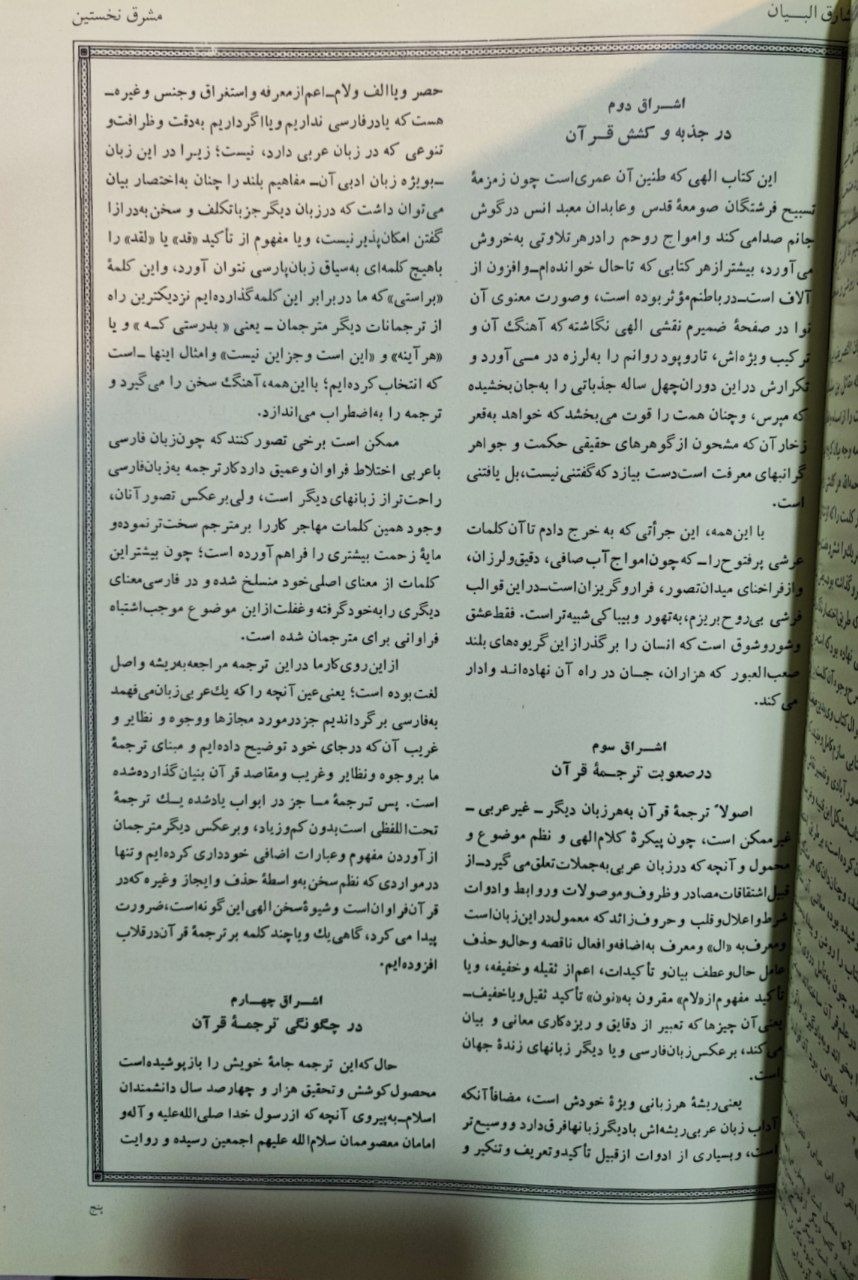 مشرق نخستین
شارق البـــیان
اشـراق دوم
در جذبه و کشش قـرآن
این کتاب الهی که طنین آن عمری‌است چون زمزمهٔ
تسبیح فرشتگان صومعهٔ قدس وعابدان معبد انس درگوش
جانم صدامی‌کند وامواج روحم رادرهر تلاوتی به‌خروش
می‌آورد، بیشتراز هر کتابی که تاحال خوانده‌ام‌ـ وافزون از
آلاف است‌ـ درباطنم مؤثر بوده است، وصورت معنوی آن
نوا در صفحهٔ ضمیرم نقشی الهی نگاشته‌که آهنگ آن و
ترکیب ویژه‌اش، تاروپود روانم را به‌لرزه در مـی‌آورد و
تکرارش دراین دوران‌چهل ساله جذباتی را به‌جان‌بخشیده
که مپرس، وچنان همت را قوت می‌بخشد که خواهد به‌قعر
زخار آن‌که مشحون ازگوهرهای حقیقی حکمت و جواهر
گرانبهای معرفت است‌دست بیازد که‌گفتنی‌نیست،بل یافتنی
است.
با این‌همه، این جرأتی که به خرج دادم تاآن کلمات
عرشی پرفتوح راـ که‌چون‌امواج‌آب صافی، دقیق‌ولرزان،
وازفراخنای میدان‌تصور، فراروگریزان‌است‌ـ دراین قوالب
فرشی بی‌روح بریزم،به‌تهور وبیباکی‌شبیه‌تر است. فقط‌عشق
وشوروشوق است‌که انسان را برگذر ازاین‌گریوه‌های بلند
صعب‌العبور که هزاران، جـان در راه آن نهاده‌انـد وادار
می‌کند.
اشراق سوم
درصعوبت ترجـمهٔ قرآن
اصولاً ترجمهٔ قرآن به‌هرزبان دیگر ـ غیرعربی ـ
غیرممکن است، چون پیکرهٔ کلام‌الهی و نظم موضوع و
محمول و آنچه که درزبان عربی به‌جملات تعلق‌می گیرد‌ـ از
قبیل‌اشتقاقات‌مصادر وظروف‌وموصولات وروابط وادوات
شرط‌واعلال‌وقلب وحروف‌زائد که معمول‌دراین‌زبان‌است
ومعرف‌به «ال» ومعرف به‌اضافه‌وافعال ناقصه وحال‌وحذف
عامل حال‌وعطف بیان‌و تأکیدات، اعم‌از ثقیله وخفیفه، ویا
تأکید مفهوم از«لام» مقرون به«نون» تأکید ثقیل‌ویاخفیف‌ـ
یعنی‌آن چیزها که تعبیر از دقایق و ریزه‌کاری معانی و بیان
می‌کند، برعکس‌زبان‌فارسی ویا دیگر زبانهای زندهٔ جهان
است.
یعنی‌ریشهٔ هرزبانی ویژهٔ خودش است، مضافاً‌آنکه
آداب زبان عربی‌ریشه‌اش بادیگرزبانهافرق‌دارد و وسیع‌تر
است، وبسیاری از ادوات ازقبیل تأکیدوتعریف وتنکیر و
حصر ویاالف ولام‌ـ اعم‌ازمعرفه واستغراق وجنس وغیره‌ـ
هست که یادرفارسی نداریم ویااگرداریم به‌دقت وظرافت‌و
تنوعی که در زبان عربی دارد، نیست؛ زیـرا در این زبان
ـ بویژه زبان ادبی‌آن‌ـ مفاهیم بلند را چنان به‌اختصار بیان
می‌توان داشت که درزبان دیگرجز باتکلف و سخن‌به‌درازا
گفتن امکان‌پذیر نیست، ویا مفهوم از تأکید «قد» یا «لقد» را
باهیچ کلمه‌ای به‌سیاق زبان‌پارسی نتوان آورد، واین کلمهٔ
«براستی»که ما دربرابر این‌کلمه‌گذارده‌ایم نزدیکترین راه
از ترجمانات دیگر مترجمان ـ یعنی « بدرستی کـه » و یا
«هرآینه» و «این است وجزاین نیست» وامثال اینها ـ است
که انتخاب کرده‌ایم؛ بااین‌همه، آهنگ سخن را می‌گیرد و
ترجمه را به‌اضطراب می‌اندازد.
ممکن است برخی تصور کنند که چون‌زبان فارسی
باعربی اختلاط فراوان وعمیق دارد کارترجمه به‌زبان‌فارسی
راحت‌تراز زبانهای دیگر است، ولی‌برعکس تصورآنان،
وجود همین کلمات مهاجر کاررا برمترجم سخت‌ترنموده‌و
مایهٔ زحمت بیشتری را فراهم‌آورده است؛ چون بیشتراین
کلمات از معنای اصلی‌خود منسلخ شده و در فارسی‌معنای
دیگری رابه‌خودگرفته وغفلت‌ازاین موضوع موجب‌اشتباه
فراوانی برای مترجمان شده است.
ازاین‌روی‌کارما دراین ترجمه مراجعه‌به‌ریشه واصل
لغت بوده است؛ یعنی‌عین‌آنچه را که یك‌عربی‌زبان‌می‌فهمد
به‌فارسی برگرداندیم جزدرمورد مجازها ووجوه و نظایر و
غریب آن‌که درجای خود توضیح داده‌ایم و مبنای ترجمهٔ
ما بروجوه ونظایر وغریب ومقاصد قرآن بنیان‌گذارده‌شده
است. پس تـرجمهٔ مـا جز در ابواب یادشده یـك ترجمهٔ
تحت‌اللفظی است‌بدون کم‌وزیاد، وبرعکس دیگرمترجمان
ازآوردن مفهوم وعبارات اضافی خودداری کرده‌ایم وتنها
درمواردی که نظم سخن‌به‌واسطهٔ حذف وایجاز وغیره که‌در
قرآن‌فراوان‌است وشیوهٔ‌سخن‌الهی‌این‌گونه‌است،ضرورت
پیدا می‌کرد، گاهی‌یك ویاچند کلمه بر ترجمهٔ قرآن‌درقلاب
افزوده‌ایم.
اشراق چهـارم
در چگونگی ترجمـهٔ قرآن
حال که‌این ترجمه جامهٔ خویش را بازپوشیده‌است
محصول‌کوشش وتحقیق هزار و چهارصد سال دانشمندان
اسلام‌ـ به‌پیروی آنچه که ازرسول خدا صلی‌الله‌علیه و آله‌و
امامان معصوممان سلام‌الله علیهم اجمعین رسیده و روایت
پنج